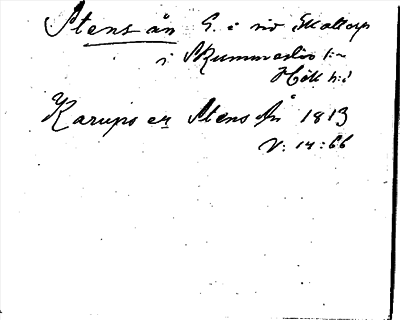 Stens ån G. i vid Skottorp
i Skummeslöv s:n
Hök h:d
Karups er Stens Å 1813
V: 14:66